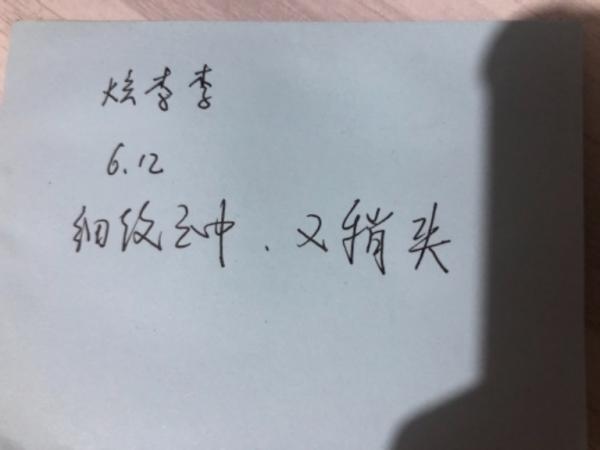 炫李李
6.12
细纹之中.又稍头